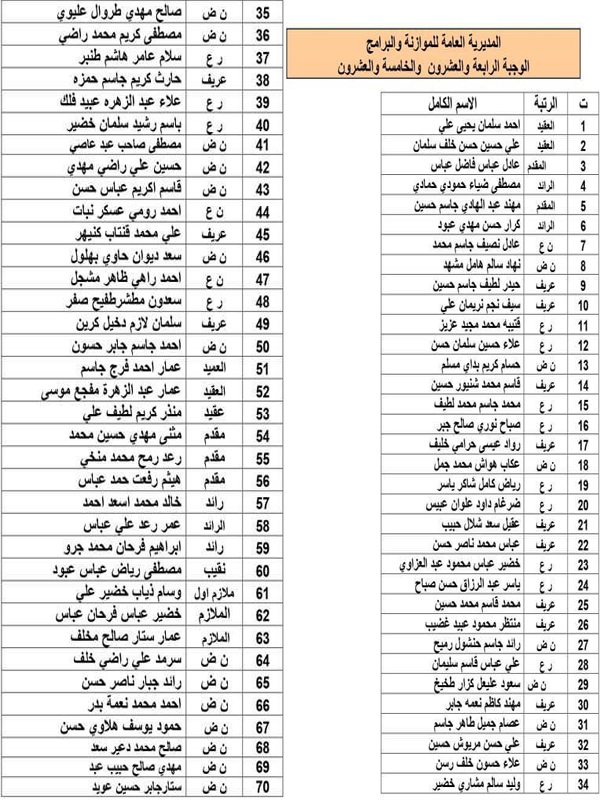 المديرية العامة للموازنة والبرامج
الوجبة الرابعة والعشرون والخامسة والعشرون
ت الرتبة الاسم الكامل
1 العقيد احمد سلمان يحيى علي
2 العقيد علي حسين حسن خلف سلمان
3 المقدم عادل عباس فاضل عباس
4 الرائد مصطفى ضياء حمودي حمادي
5 المقدم مهند عبد الهادي جاسم حسين
6 الرائد كرار حسن مهدي عبود
7 ن ع عادل نصيف جاسم محمد
8 ن ض نهاد سالم هامل مشهد
9 عريف حيدر لطيف جاسم حسين
10 عريف سيف نجم نريمان علي
11 ر ع قتيبه محمد مجيد عزيز
12 ر ع علاء حسين سلمان حسن
13 ن ض حسام كريم بداي مسلم
14 عريف قاسم محمد شنيور حسين
15 ر ع محمد جاسم محمد لطيف
16 ر ع صباح نوري صالح جبر
17 عريف رواد عيسى حرامي خليف
18 ن ض عكاب هواش محمد جمل
19 ر ع رياض كامل شاكر ياسر
20 ر ع ضرغام داود علوان عبيس
21 عريف عقيل سعد شلال حبيب
22 عريف عباس محمد ناصر حسن
23 ر ع خضير عباس محمود عبد العزاوي
24 ر ع ياسر عبد الرزاق حسن صباح
25 عريف محمد قاسم محمد حسين
26 عريف منتظر محمود عبيد غضيب
27 ن ض رائد جاسم حنشول رميح
28 ر ع علي عباس قاسم سليمان
29 ن ض سعود عليعل كزار طخيخ
30 عريف مهند كاظم نعمه جابر
31 ن ض عصام جميل طاهر جاسم
32 عريف علي حسن مريوش حسين
33 ن ض علاء حسون خلف رسن
34 ر ع وليد سالم مشاري خضير
35 ن ض صالح مهدي طروال عليوي
36 ن ض مصطفى كريم محمد راضي
37 ر ع سلام عامر هاشم طنبر
38 عريف حارث كريم جاسم حمزه
39 ر ع علاء عبد الزهره عبيد فلك
40 ر ع باسم رشيد سلمان خضير
41 ن ض مصطفى صاحب عبد عاصي
42 ن ض حسين علي راضي مهدي
43 ن ض قاسم اكريم عباس حسن
44 ن ع احمد رومي عسكر نبات
45 عريف علي محمد قنتاب كنيهر
46 ن ض سعد ديوان حاوي بهلول
47 ن ع احمد راهي ظاهر مشجل
48 ر ع سعدون مطشرطفيح صفر
49 عريف سلمان لازم دخيل كرين
50 ن ض احمد جاسم جابر حسون
51 العميد عمار احمد فرج جاسم
52 العقيد عمار عبد الزهرة مفجع موسى
53 عقيد منذر كريم لطيف علي
54 مقدم مثنى مهدي حسين محمد
55 مقدم رعد رمح محمد منخي
56 مقدم هيثم رفعت حمد عباس
57 رائد خالد محمد اسعد احمد
58 الرائد عمر رعد علي عباس
59 رائد ابراهيم فرحان محمد جرو
60 نقيب مصطفى رياض عباس عبود
61 ملازم اول وسام ذياب خضير علي
62 الملازم خضير عباس فرحان عباس
63 الملازم عمار ستار صالح مخلف
64 ن ض سرمد علي راضي خلف
65 ن ض رائد جبار ناصر حسن
66 ن ض احمد محمد نعمة بدر
67 ن ض حمود يوسف هلاوي حسن
68 ن ض صالح محمد دعير سعد
69 ن ض مهدي صالح حبيب عبد
70 ن ض ستارجابر حسين عويد